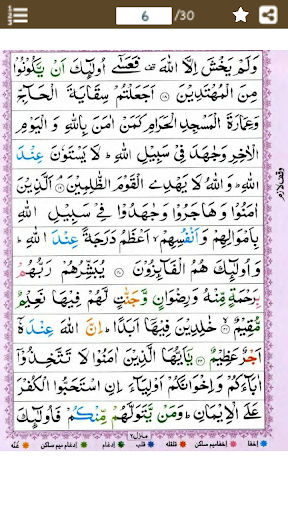 6 /30
وَلَمْ يَخْشَ اِلَّا اللّٰهَ فَعَسٰٓى اُولٰٓئِكَ اَنْ يَّكُوْنُوْا
مِنَ الْمُهْتَدِيْنَ ۝۱۸ اَجَعَلْتُمْ سِقَايَةَ الْحَآجِّ
وَعِمَارَةَ الْمَسْجِدِ الْحَرَامِ كَمَنْ اٰمَنَ بِاللّٰهِ وَ الْيَوْمِ
الْاٰخِرِ وَجٰهَدَ فِيْ سَبِيْلِ اللّٰهِ ؕ لَا يَسْتَوٗنَ عِنْدَ
اللّٰهِ ؕ وَاللّٰهُ لَا يَهْدِى الْقَوْمَ الظّٰلِمِيْنَ ۝۱۹ اَلَّذِيْنَ
اٰمَنُوْا وَ هَاجَرُوْا وَجٰهَدُوْا فِيْ سَبِيْلِ اللّٰهِ
بِاَمْوَالِهِمْ وَ اَنْفُسِهِمْ ۙ اَعْظَمُ دَرَجَةً عِنْدَ اللّٰهِ ؕ
وَ اُولٰٓئِكَ هُمُ الْفَآئِزُوْنَ ۝۲۰ يُبَشِّرُهُمْ رَبُّهُمْ
بِرَحْمَةٍ مِّنْهُ وَرِضْوَانٍ وَّجَنّٰتٍ لَّهُمْ فِيْهَا نَعِيْمٌ
مُّقِيْمٌ ۝۲۱ خٰلِدِيْنَ فِيْهَاۤ اَبَدًا ؕ اِنَّ اللّٰهَ عِنْدَهٗۤ
اَجْرٌ عَظِيْمٌ ۝۲۲ يٰۤاَيُّهَا الَّذِيْنَ اٰمَنُوْا لَا تَتَّخِذُوْۤا
اٰبَآءَكُمْ وَ اِخْوَانَكُمْ اَوْلِيَآءَ اِنِ اسْتَحَبُّوا الْكُفْرَ
عَلَى الْاِيْمَانِ ؕ وَمَنْ يَّتَوَلَّهُمْ مِّنْكُمْ فَاُولٰٓئِكَ
وقف لازم
منزل۲
اخفا اخفا میم ساکن قلقله قلب ادغام ادغام میم ساکن غنّه